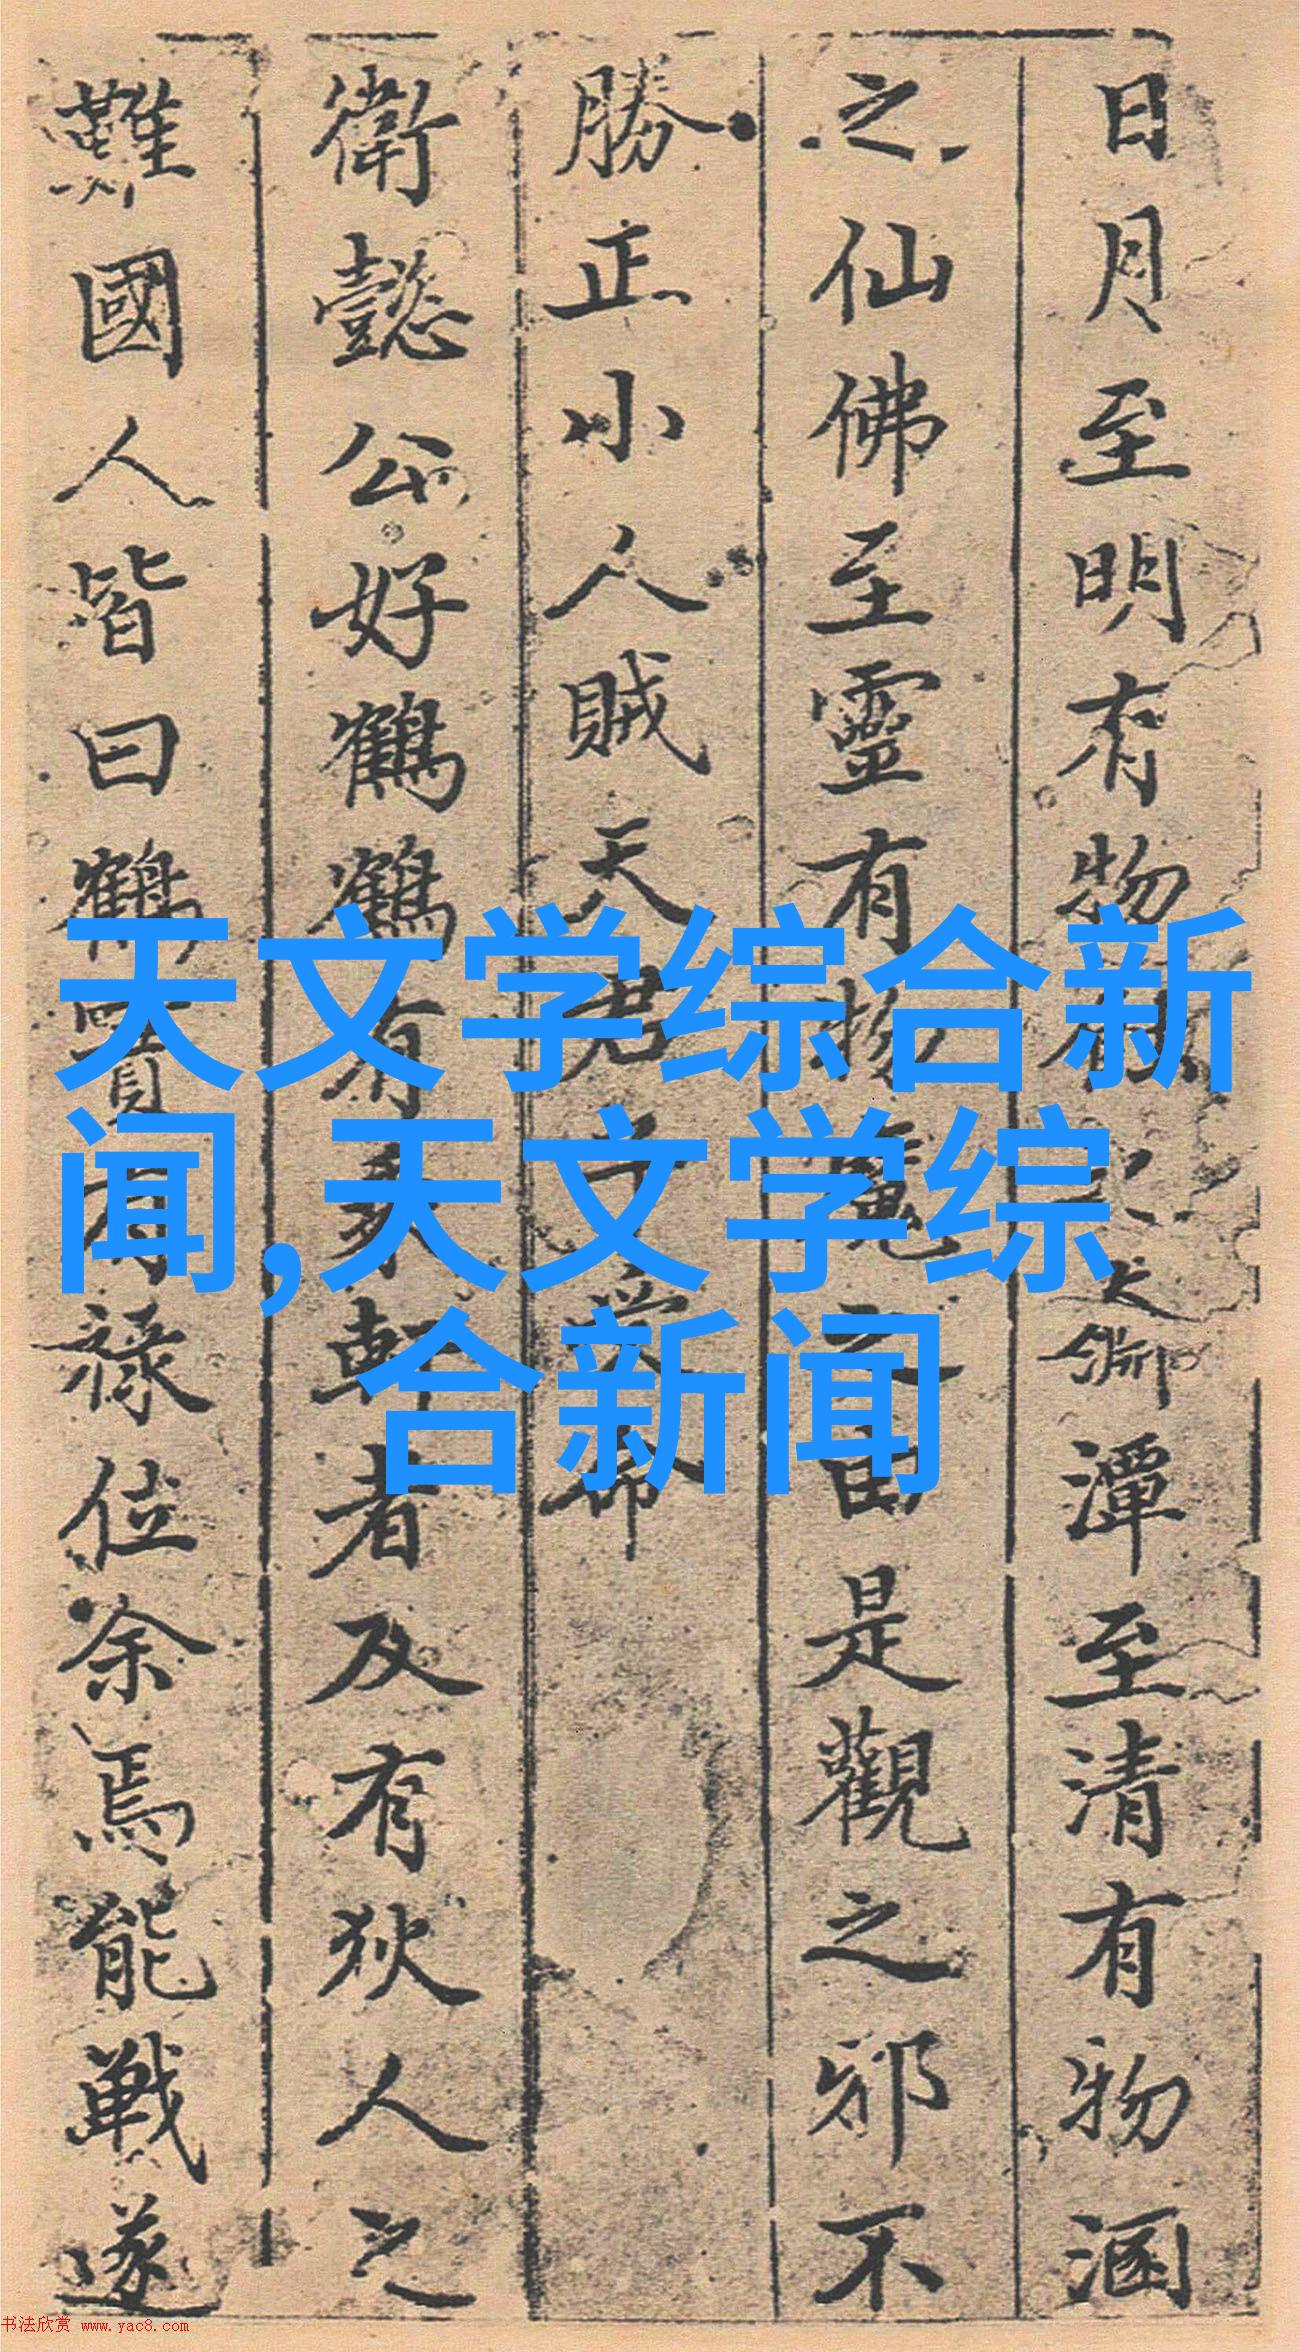 日月至明有物
潭至清有物涵
之仙佛至靈有
由是觀之邪不
勝正小人賊天君
衛懿公好鶴鶴有
者及有狄人之
難國人皆曰鶴
祿位余焉能戰遂
天文学综合新
闻,天文学综
合新闻
书法欣赏 www.yac8.com